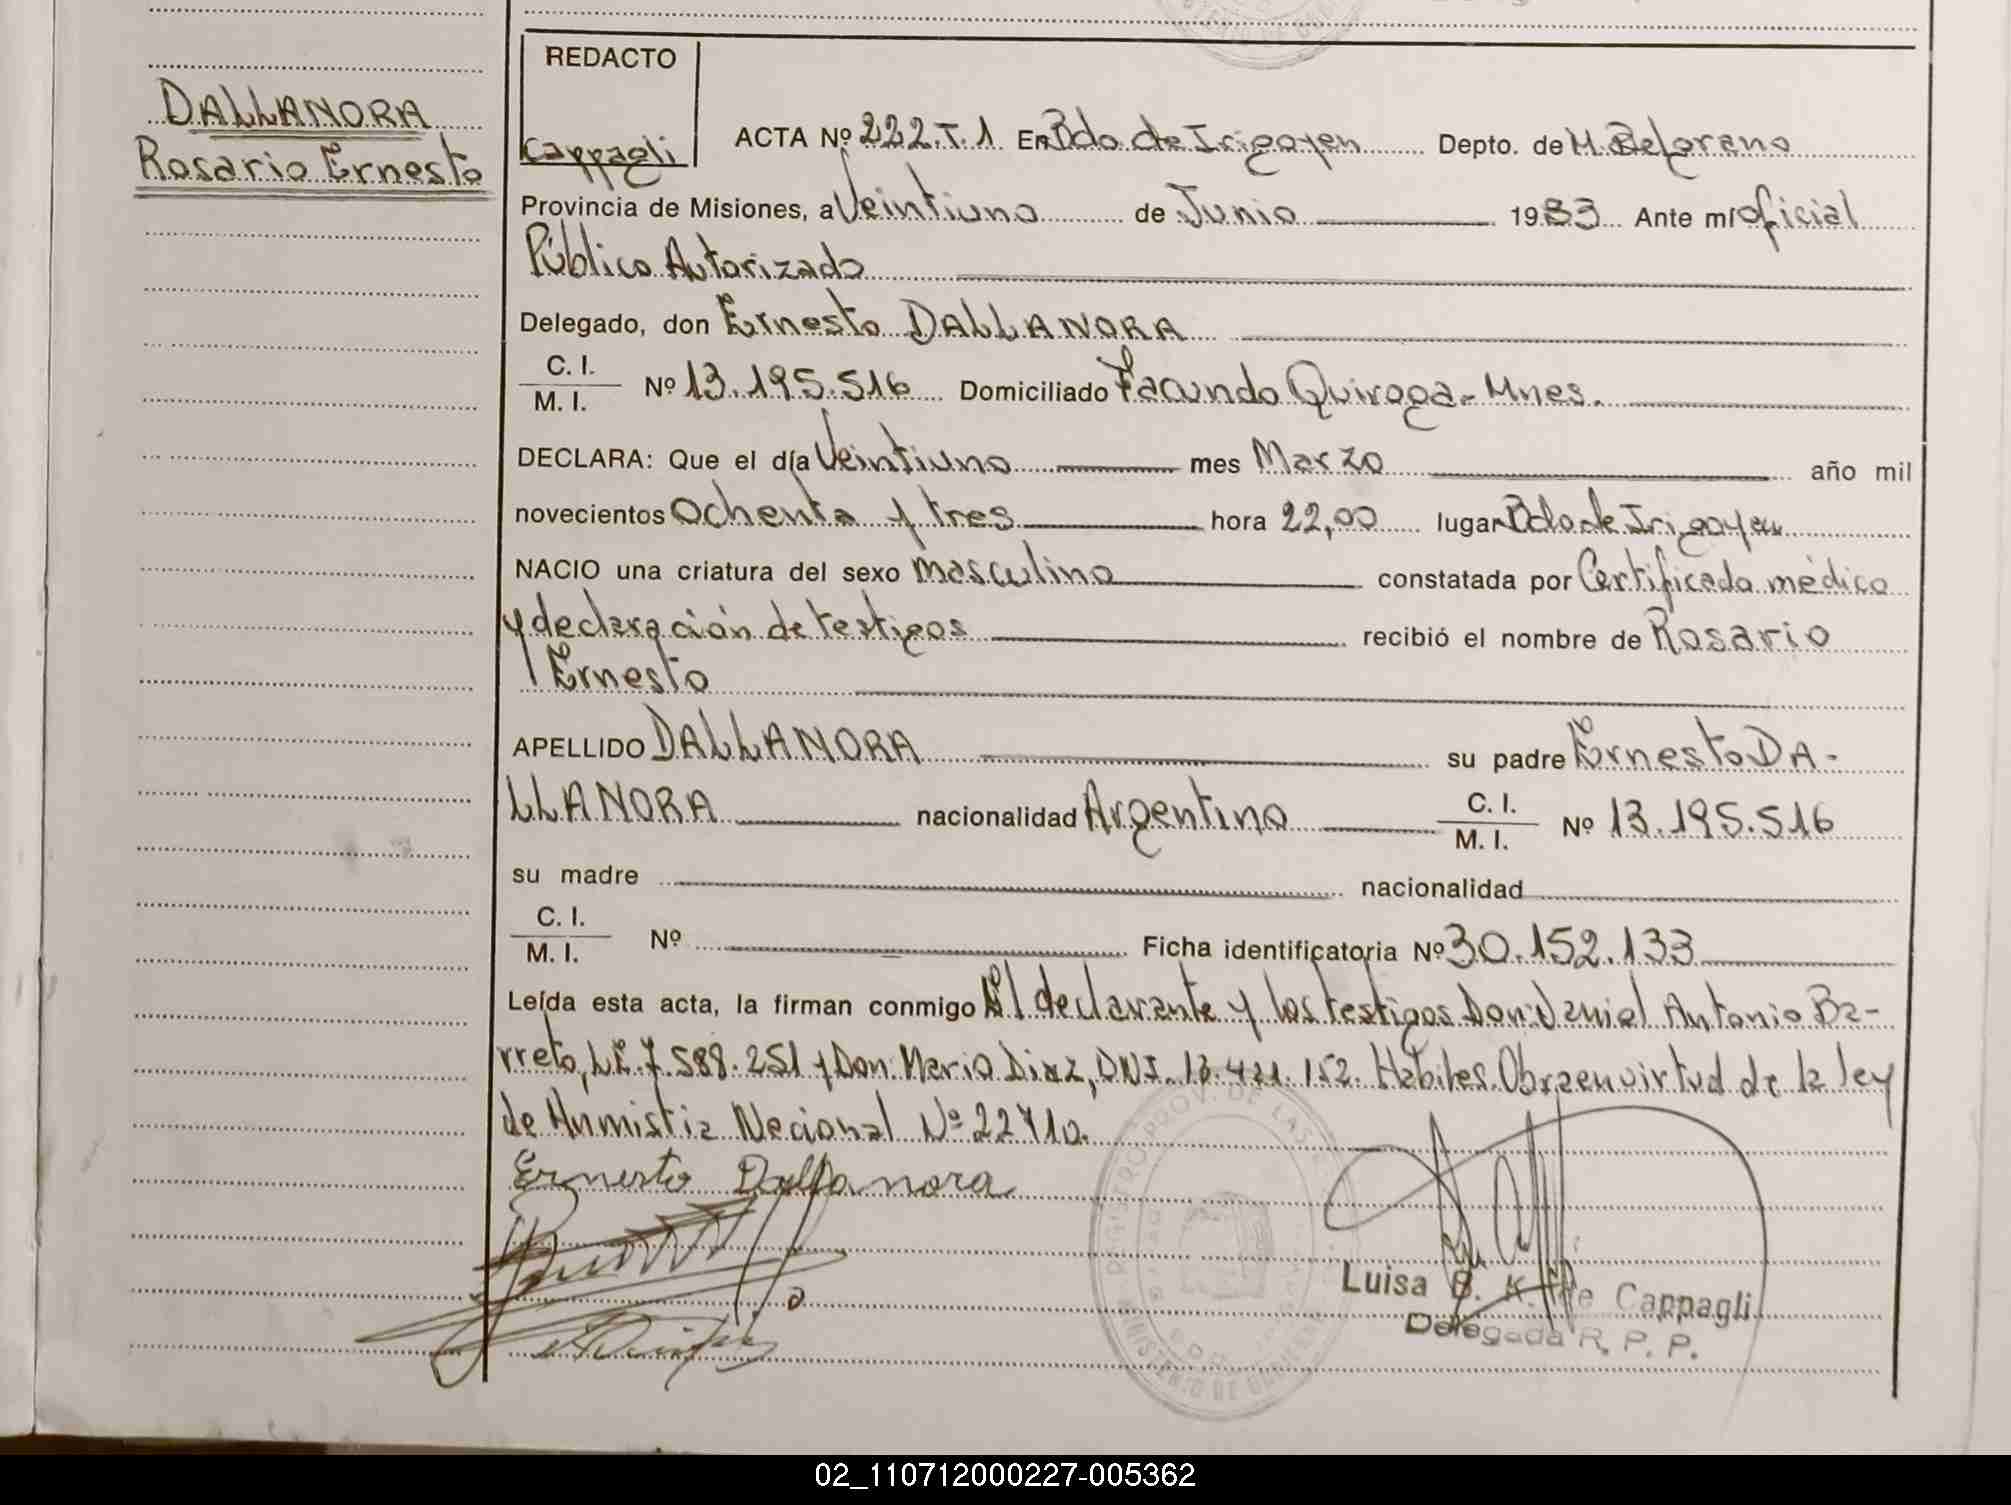 DALLANORA
Rosario Ernesto
REDACTO
Cappagli
ACTA Nº 222.T.1 En Bdo de Irigoyen Depto. de M. Belgrano
Provincia de Misiones, a Veintiuno de Junio 1983 Ante mí oficial
Público Autorizado
Delegado, don Ernesto DALLANORA
C. I.
M. I. Nº 13.195.516 Domiciliado Facundo Quiroga - Mnes.
DECLARA: Que el día Veintiuno mes Marzo año mil
novecientos Ochenta y tres hora 22,00 lugar Bdo de Irigoyen
NACIO una criatura del sexo masculino constatada por Certificado médico
y declaración de testigos recibió el nombre de Rosario
Ernesto
APELLIDO DALLANORA su padre Ernesto DA-
LLANORA nacionalidad Argentino C. I. M. I. Nº 13.195.516
su madre nacionalidad
C. I.
M. I. Nº Ficha identificatoria Nº 30.152.133
Leída esta acta, la firman conmigo El declarante y los testigos Don: Daniel Antonio Ba-
rreto, L.E. 7.588.251 y Don: Mario Diaz, DNI. 13.421.152. Hábiles. Obra en virtud de la ley
de Anmistia Nacional Nº 22710.
Ernesto Dallanora
Luisa B. K. de Cappagli
Delegada R. P. P.
02_110712000227-005362